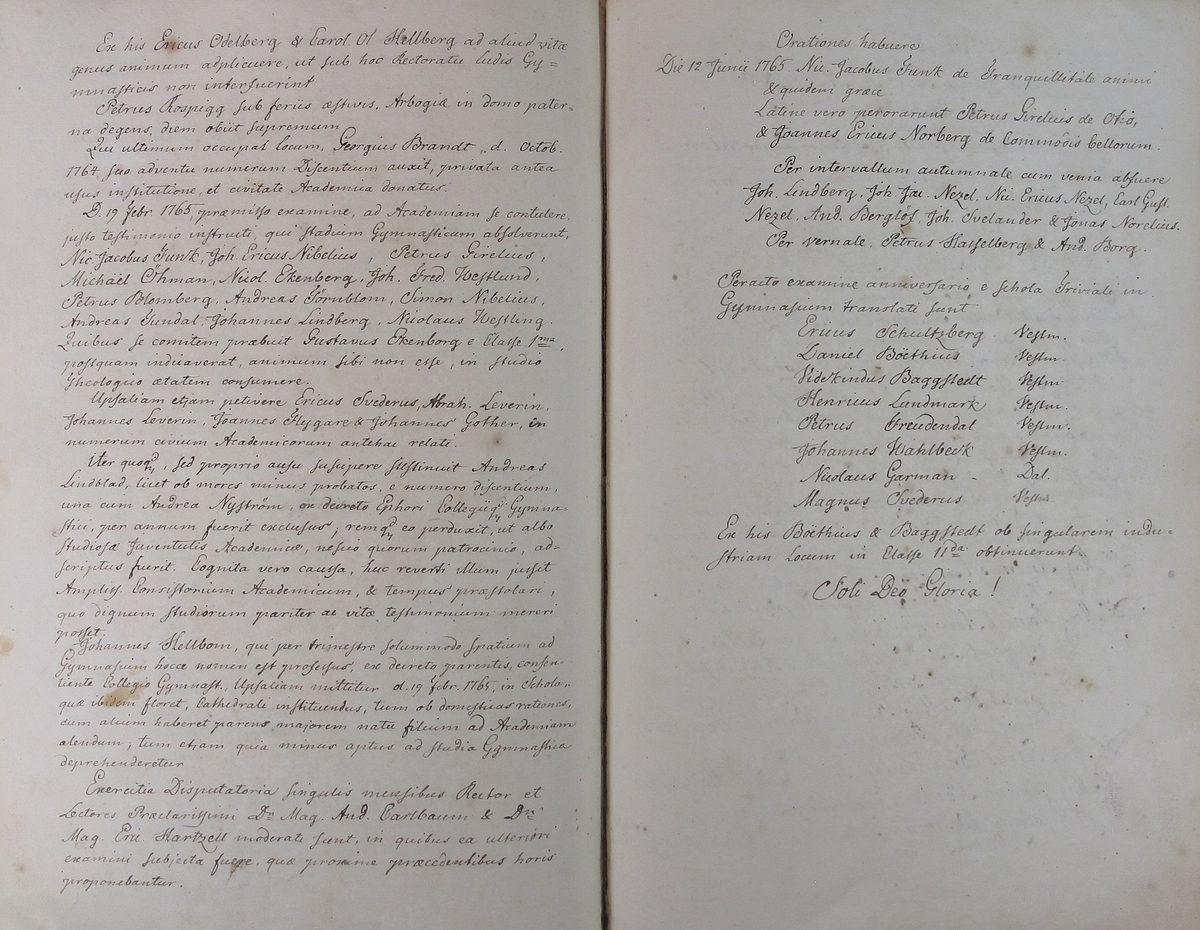 Ex his Ericus Odelberg & Carol. Ol Hellberg ad aliud vitæ
genus animum adplicuere, ut sub hoc Rectoratu ludis Gy=
mnasticis non interfuerint
Petrus Rospigg sub feriis æstivis, Arbogiæ in domo pater-
na degens, diem obiit supremum
Qui ultimum occupat locum, Georgius Brandt „d. Octob.
1764. suo adventu numerum Discentium auxit, privata antea
usus institutione, et civitate Academica donatus.
D. 19 Febr. 1765, præmisso examine, ad Academiam se contulere,
justo testimonio instructi, qui stadium Gymnasticum absolverunt,
Nic. Jacobus Funk, Joh. Ericus Nibelius, Petrus Girelius,
Michaël Ohman, Nicol. Ekenberg, Joh. Fred. Westlund,
Petrus Blomberg, Andreas Törnblom, Simon Nibelius,
Andreas Sundal. Johannes Lindberg, Nicolaus Westling.
Quibus se comitem præbuit Gustavus Ekenborg e Classe 1ma,
postquam indicaverat, animum sibi non esse, in studio
Theologico ætatem consumere.
Upsaliam etjam petivere Ericus Svederus, Abrah. Leverin,
Johannes Leverin, Joannes Flygare & Johannes Gother, in
numerum civium Academicorum antehac relati.
Iter quoq, sed proprio ausu suscipere sustinuit Andreas
Lindblad, licet ob mores minus probatos, e numero discentium,
una cum Andrea Nyström, ex decreto Ephori Collegiiq Gymna-
stici, per annum fuerit exclusus, remq eo perduxit, ut albo
studiosæ Juventutis Academicæ, nescio quorum patrocinio, ad-
scriptus fuerit. Cognita vero caussa, huc reverti illum jussit
Ampliss. Consistorium Academicum, & tempus præstolari,
quo dignum studiorum pariter ac vitæ testimonium mereri
posset.
Johannes Hellbom, qui per trimestre solummodo spatium ad
Gymnasium hocce nomen est professus, ex decreto parentis, consen-
tiente Collegio Gymnast., Upsaliam mittitur d. 19 Febr. 1765, in Schola,
quæ ibidem floret, Cathedrali instituendus, tum ob domesticas rationes,
cum alium haberet parens majorem natu filium ad Academiam
alendum, tum etjam quia minus aptus ad studia Gymnastica
deprehenderetur
Exercitia Disputatoria singulis mensibus Rector et
Lectores Præclarissimi Dn Mag. And. Carlbaum & Dn
Mag. Eric. Hartzell moderati sunt, in quibus ea ulteriori
examini subjecta fuere, quæ proxime præcedentibus horis
proponebantur.
Orationes habuere
Die 12 Junii 1765. Nic. Jacobus Funk de Tranquillitate animi
& quidem græce
Latine vero perorarunt Petrus Girelius de Otio,
& Joannes Ericus Norberg de Commodis bellorum.
Per intervallum autumnale cum venia abfuere
Joh. Lindberg, Joh. Jac. Nezel, Nic. Ericus Nezel, Carl Gust.
Nezel, And. Berglöf, Joh. Svelander & Jonas Norelius.
Per vernale, Petrus Hasselberg & And. Borg.
Peracto examine anniversario e schola Triviali in
Gymnasium translati sunt
Ericus Schultzberg Vestm.
Daniel Boëthius Vestm.
Videkindus Baggstedt Vestm.
Henricus Lundmark Vestm.
Petrus Freudendal Vestm.
Johannes Wahlbeck Vestm.
Nicolaus Garman - Dal.
Magnus Svederus Vestm.
Ex his Boëthius & Baggstedt ob singularem indu-
striam locum in Classe 11da obtinuerunt.
Soli Deo Gloria!